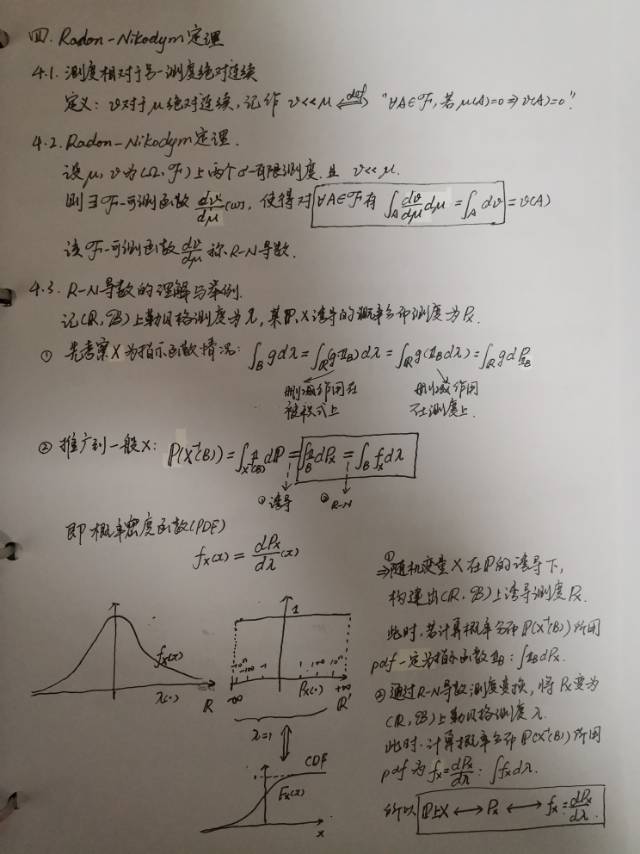 四. Radon-Nikodym定理
4.1. 测度相对于另一测度绝对连续
定义: υ对于μ绝对连续,记作 υ<<μ ⟺def "∀A∈ℱ, 若μ(A)=0⇒υ(A)=0".
4.2. Radon-Nikodym定理.
设μ, υ为(Ω, ℱ)上两个σ-有限测度, 且 υ<<μ.
则∃ℱ-可测函数 dυ/dμ(ω), 使得对 ∀A∈ℱ有 ∫_A dυ/dμ dμ = ∫_A dυ = υ(A)
该ℱ-可测函数 dυ/dμ 称R-N导数.
4.3. R-N导数的理解与举例.
记(ℝ, ℬ)上勒贝格测度为λ, 某ℙ, X诱导的概率分布测度为Px.
① 先考察X为指示函数情况: ∫_B g dλ = ∫_ℝ(g·1_B)dλ = ∫_ℝ g(1_B dλ) = ∫_ℝ g dP_1B
删减作用在 删减作用
被积式上 在测度上.
② 推广到一般X: ℙ(X⁻¹(B)) = ∫_X⁻¹(B) 1 dℙ = ∫_B 1 dPx = ∫_B fx dλ
①诱导 ②R-N
即概率密度函数(PDF)
fx(x) = dPx/dλ (x)
①⇒随机变量X在ℙ的诱导下,
构建出(ℝ, ℬ)上诱导测度Px.
此时, 若计算概率分布ℙ(X⁻¹(B))所用
pdf一定为指示函数1_B: ∫1_B dPx.
②通过R-N导数测度变换, 将Px变为
(ℝ, ℬ)上勒贝格测度λ.
此时, 计算概率分布ℙ(X⁻¹(B))所用
pdf为 fx=dPx/dλ: ∫fx dλ.
所以 ℙ上X ⟷ Px ⟷ fx=dPx/dλ.
fx(x)
λ(·) R
1
-∞ Px(·) +∞ R'
λ=1
CDF
1
Fx(x)
x